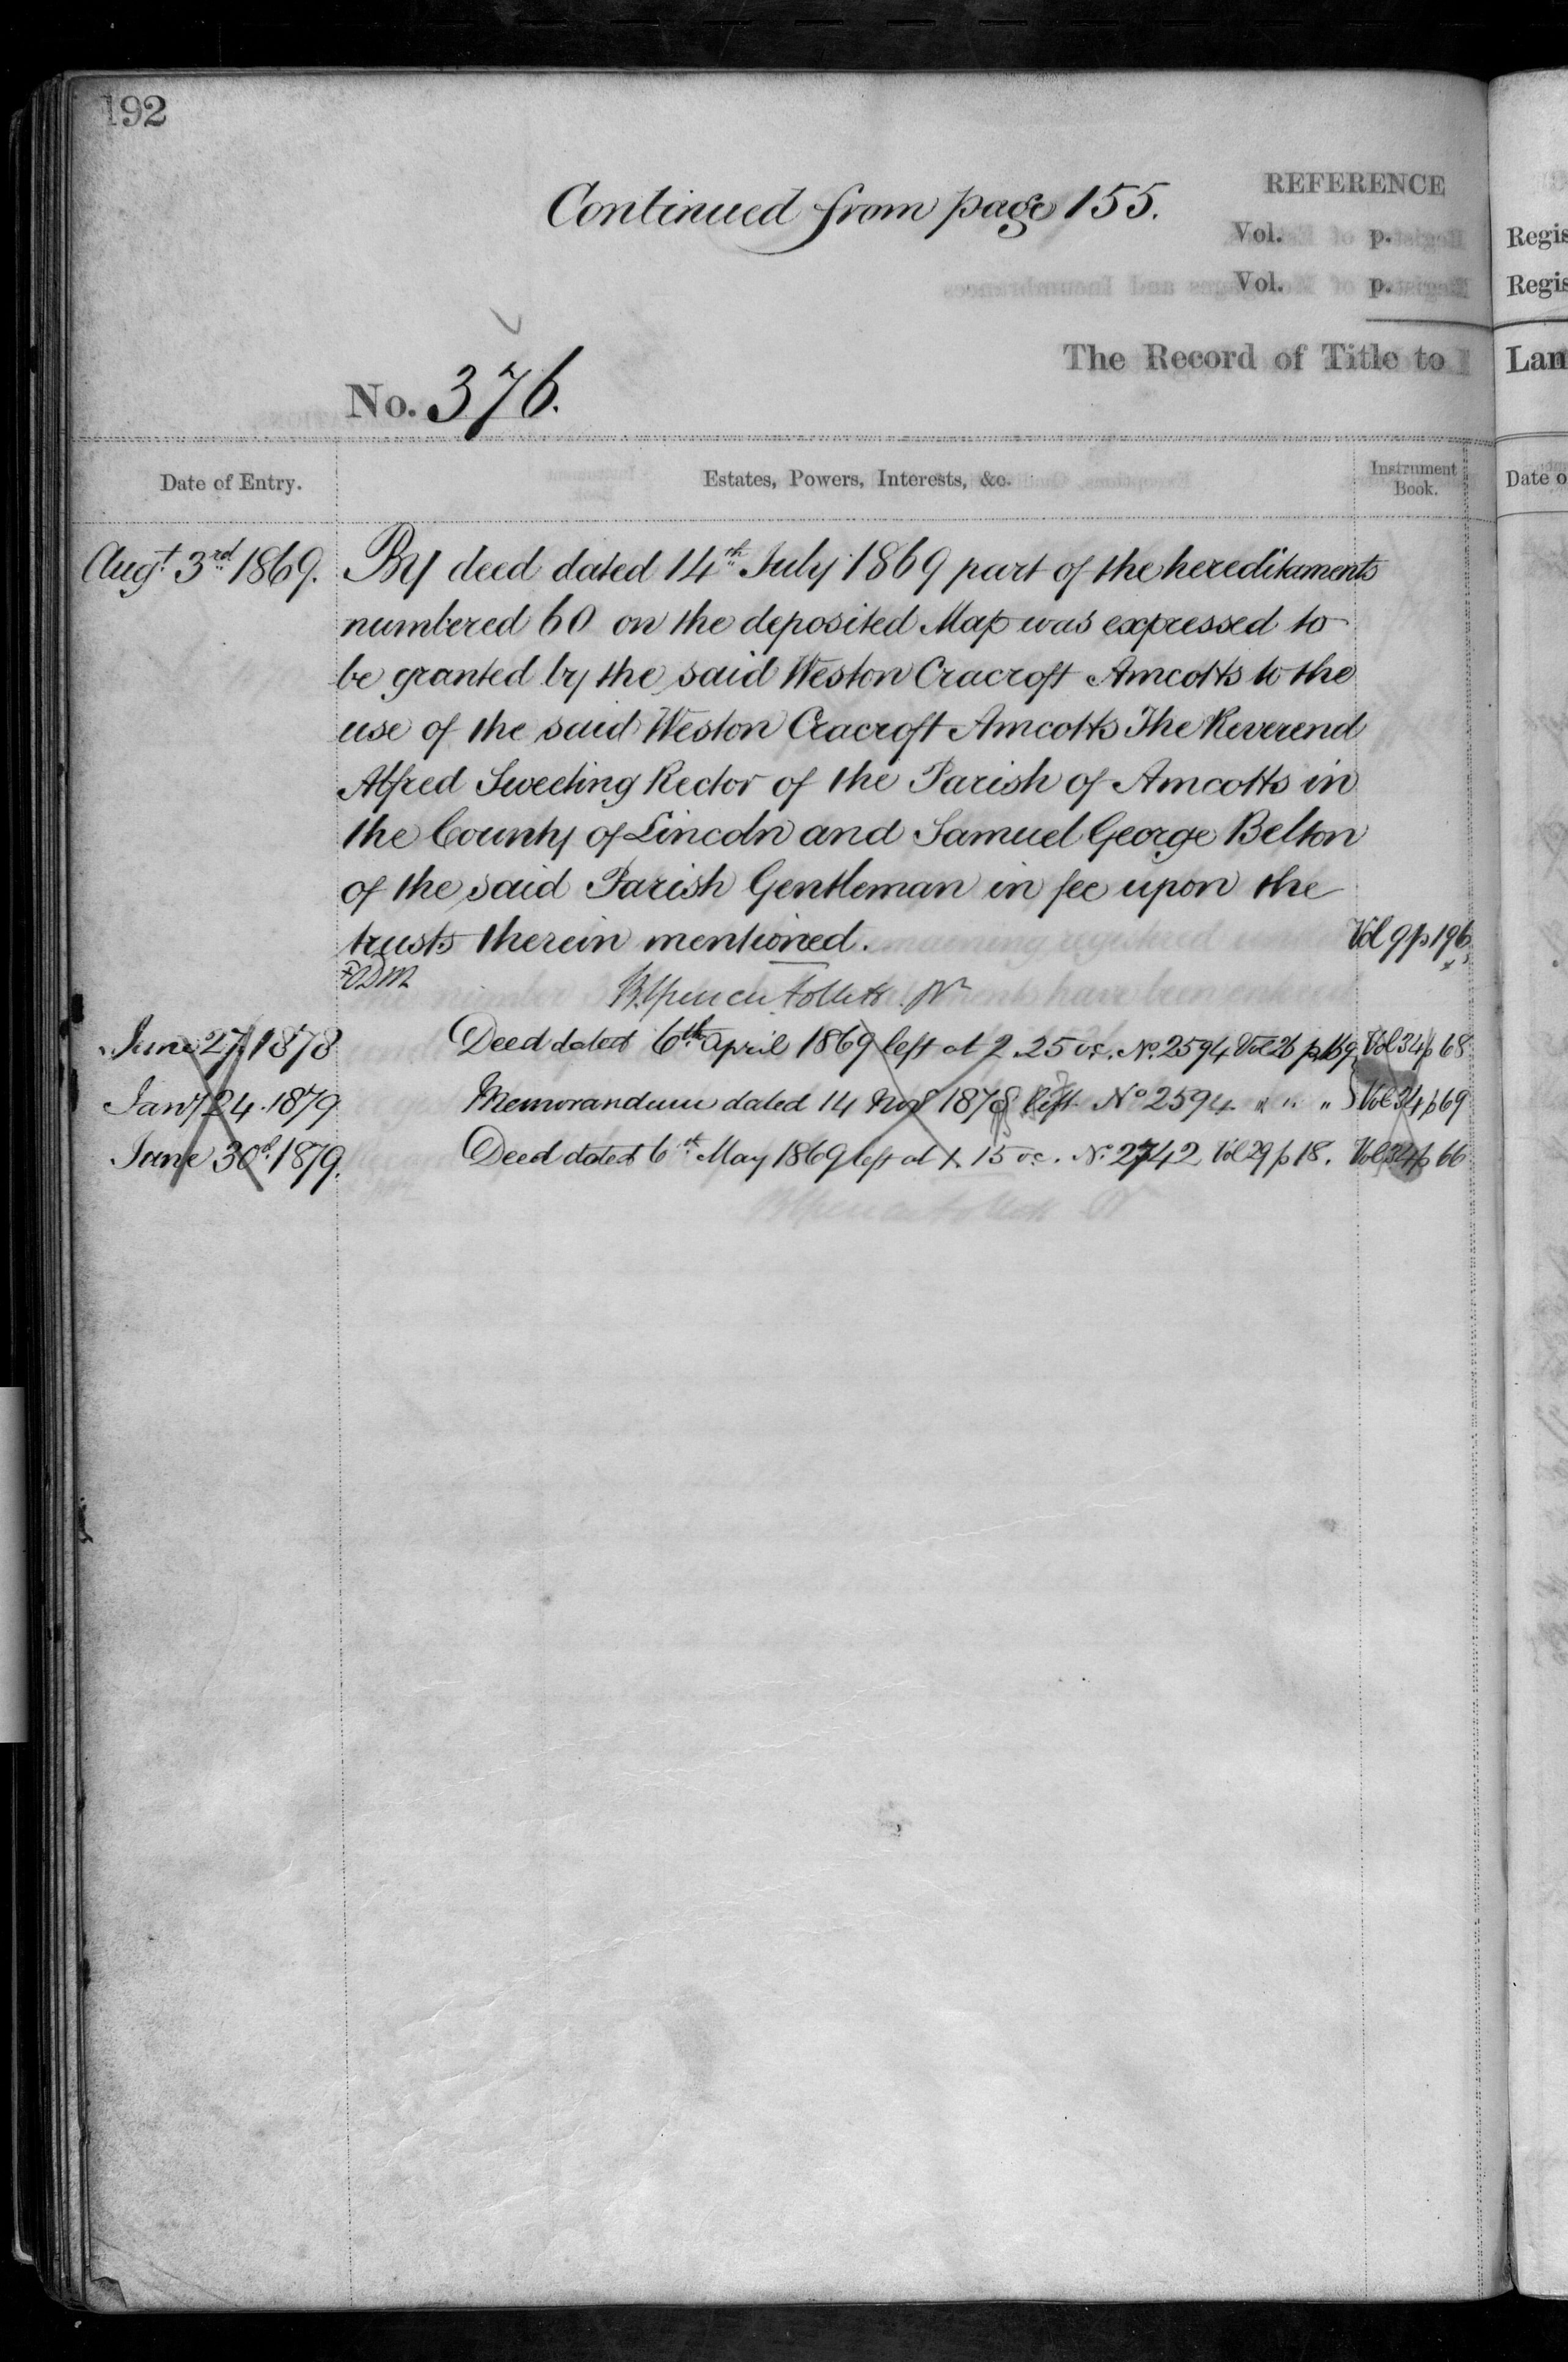 192
Continued from page 155.
REFERENCE
Vol. p.
Vol. p.
The Record of Title to
No. 376.
Date of Entry. Estates, Powers, Interests, &c. Instrument Book.
Augt. 3rd 1869. By deed dated 14th July 1869 part of the hereditaments
numbered 60 on the deposited Map was expressed to
be granted by the said Weston Cracroft Amcotts to the
use of the said Weston Cracroft Amcotts The Reverend
Alfred Sweeting Rector of the Parish of Amcotts in
the County of Lincoln and Samuel George Belton
of the said Parish Gentleman in fee upon the
trusts therein mentioned. Vol 9 p 196
June 27 1878 Deed dated 6th April 1869 left at 2.25 No. 2594 Vol 26 p 169 Vol 34 p 68
Jany 24 1879 Memorandum dated 14 Novr 1878 No 2594 " " " Vol 34 p 69
June 30 1879. Deed dated 6th May 1869 left at 15 No. 2742 Vol 29 p 18. Vol 34 p 66
Regis
Regis
Lan
Date o